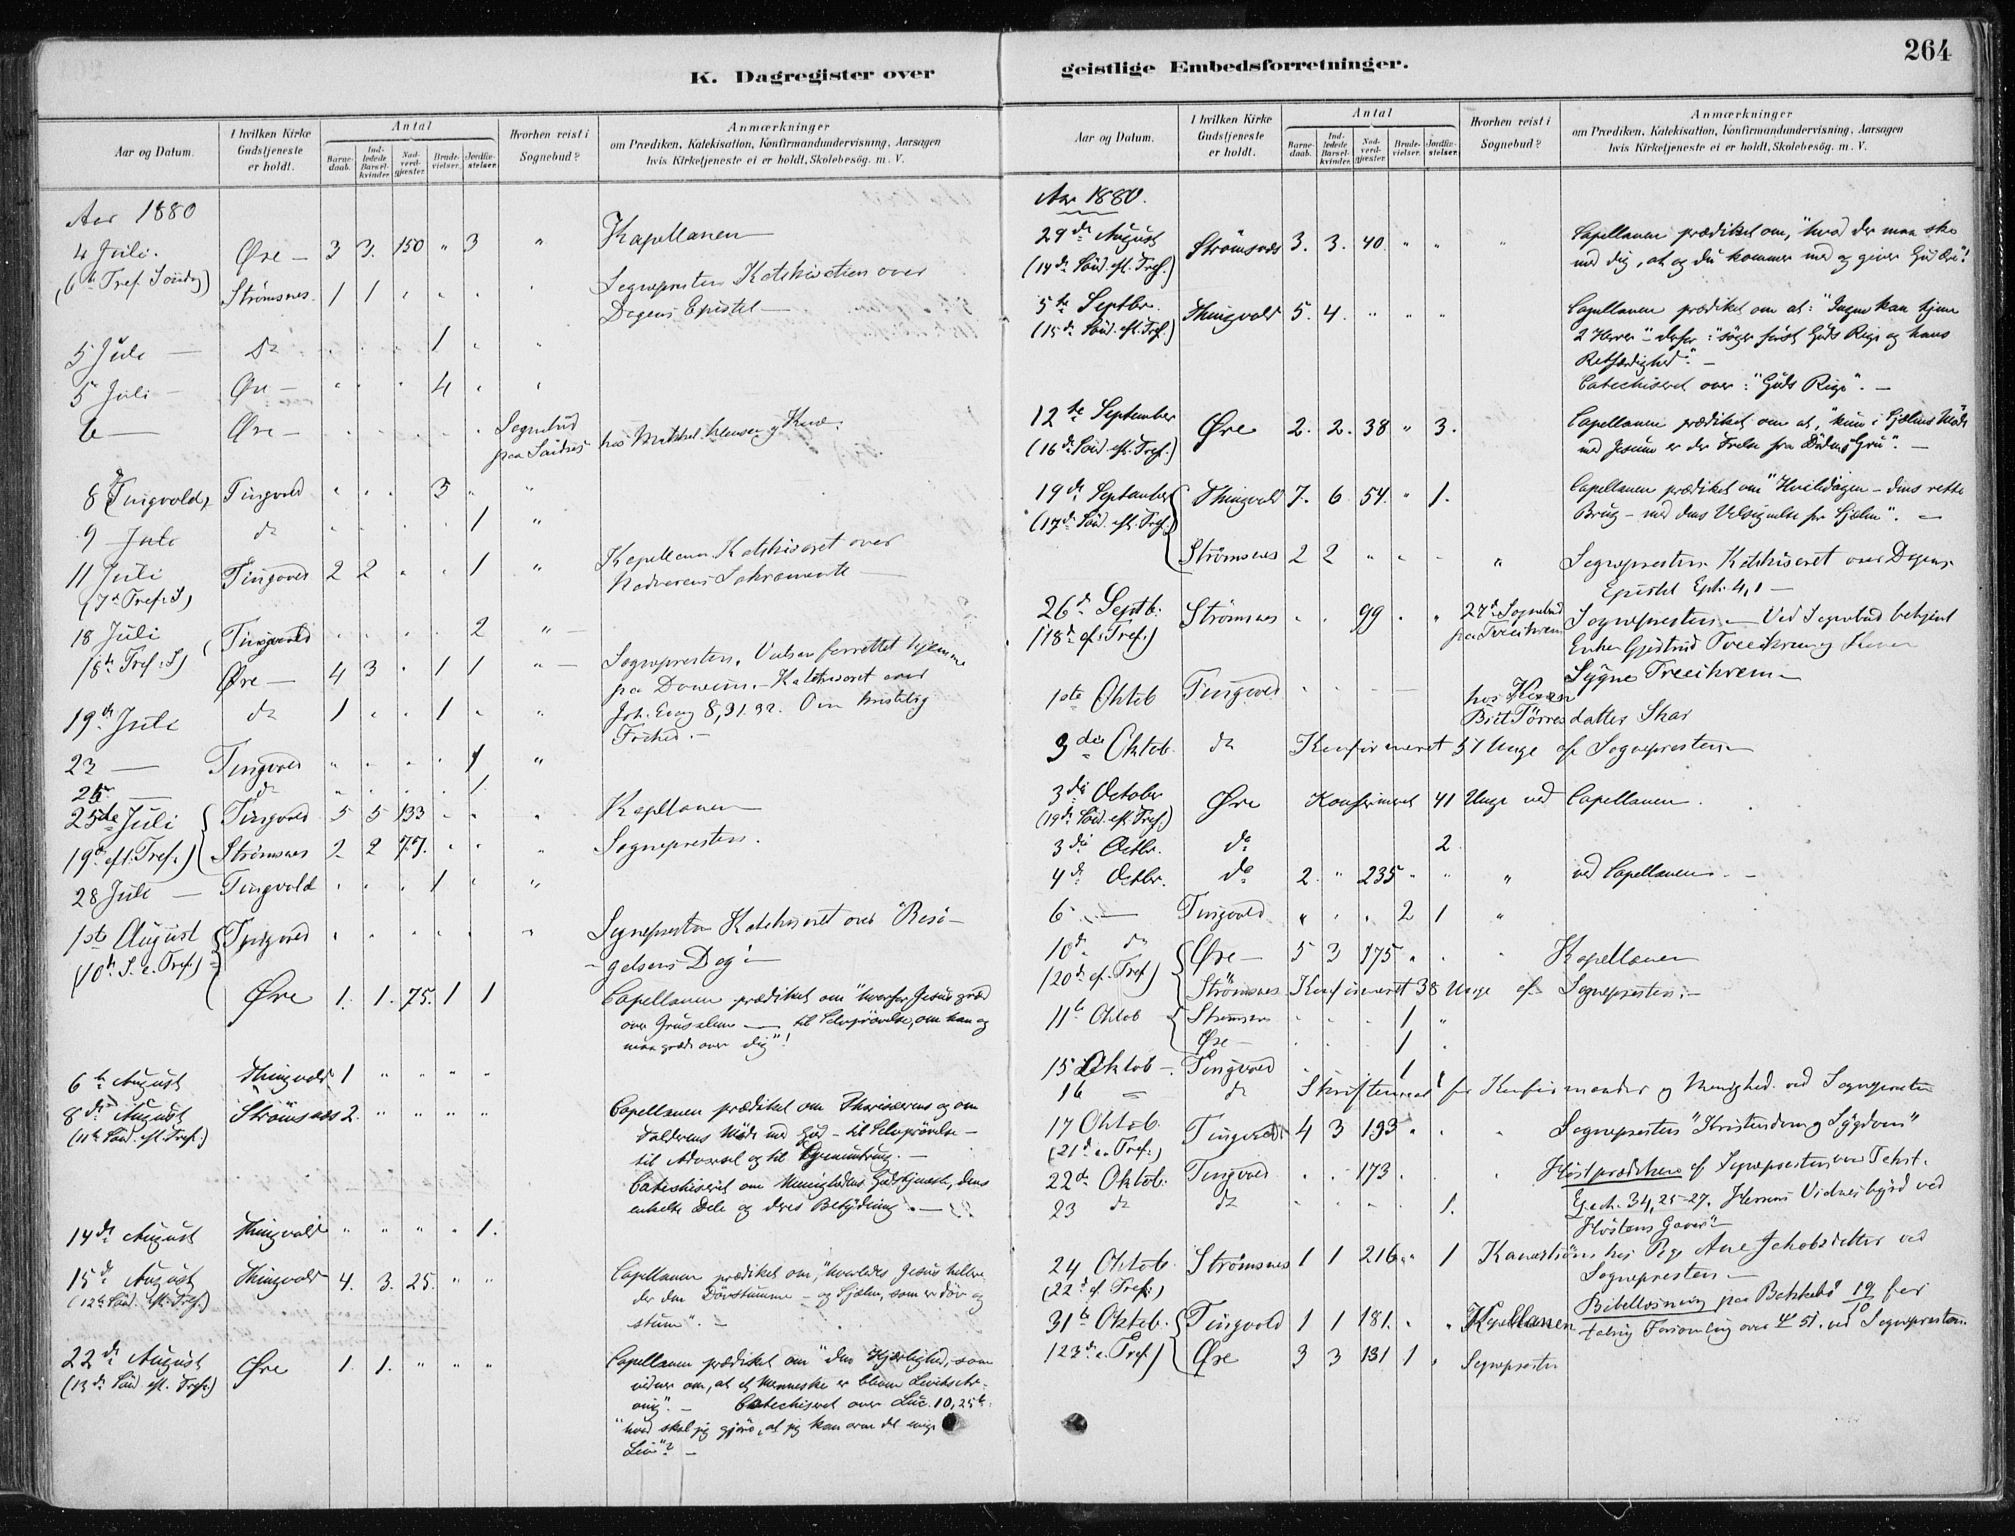 264
K. Dagregister over geistlige Embedsforretninger.
Aar og Datum. I hvilken Kirke Gudstjeneste er holdt. Antal Barnedaab. Indledede Barselkvinder. Nadverdgjæster. Brudevielser. Jordfæstelser. Hvorhen reist i Sognebud? Anmærkninger om Prædiken, Katekisation, Konfirmandundervisning, Aarsagen hvis Kirketjeneste ei er holdt, Skolebesøg. m. V.
Aar 1880
4 Juli. Øre – 3 3. 150 " 3 " Kapellanen
(6te Tref. Søndg) Strømsnes. 1 1 " " " " Sognepresten Katekisation over
Dagens Epistel –
5 Juli – do " " " 1 " "
5 Juli – Øre – " " " 4 " "
6 – Øre – " " " " " Sognebud hos Mikkel
paa
8 Tingvold, Tingvold " " " 3 " "
9 Juli do " " " " 1 "
11 Juli Tingvold 2 2 " " 1 " Kapellanen Katekiseret over
(7de Tref. S) Nadverens Sakramente –
18 Juli Tingvold " " " " 2 " –
(8de Tref: S) Øre – 4 3 " 1 1 " – Sognepresten. Vielsen forrettet hjemme
paa – Katekiseret over
19de Juli do 1 " " 1 " " Joh. Evang 8,31.32. Om kristelig
Frihed. –
23 – Tingvold " " " " 1 "
25 – do " " " " 1.
25de Juli Tingvold 5 5 133 " " " Kapellanen
19de eft. Tref.) Strømsnes 2 2 77. " " " Sognepresten.
28 Juli – Tingvold " " " 1 " "
1ste August Tingvold " " " " " " Sognepresten Katekiseret over "Besø-
(10de S. e. Tref.) gelsens Dag" –
Øre 1. 1. 75. 1 1 Capellanen prædiket om "hvorfor Jesus græd
over Jerusalem – til Selvprøvelse, om han og
maa græde over dig"!
6te August Thingvold 1 " " " "
8de August Strömsnæs 2. " " " " Capellanen prædiket om Pharisæerens og om
(11te Sönd. eft. Tref.) Tolderens Møde med Gud – til Selvprøvelse –
til Advarsel og til Opmuntring. –
Catechiseret om Menighedens Gudstjeneste, dens
enkelte Dele og deres Betydning. –
14de August Thingvold " " " " 1.
15de August Thingvold 4. 3. 25. " " Capellanen prædiket om, "hvorledes Jesus helbre-
(12te Sönd. eft. Tref.) der den Døvstumme – og Sjælen, som er døv og
stum". –
22de August Øre 1. 1. " " " Capellanen prædiket om "den Kjærlighed, som
(13de Sönd eft. Tref.) vidner om, at et Menneske er bleven
". – Catechiseret over Luc. 10,25 :
"hvad skal jeg gjøre, at jeg kan arve det evige
Liv"? –
Aar og Datum. I hvilken Kirke Gudstjeneste er holdt. Antal Barnedaab. Indledede Barselkvinder. Nadverdgjæster. Brudevielser. Jordfæstelser. Hvorhen reist i Sognebud? Anmærkninger om Prædiken, Katekisation, Konfirmandundervisning, Aarsagen hvis Kirketjeneste ei er holdt, Skolebesög. m. V.
Aar 1880.
29de August Strömsnæs 3. 3. 40. " " " Capellanen prædiket om, "hvad der maa ske
(14de Sönd. eft. Tref.) med dig, at og du kommer med og giver Gud Ære"!
5te Septbr. Thingvold 5. 4. " " " Capellanen prædiket om at: "Ingen kan tjene
(15de Sönd. eft. Tref.) 2 Herrer" – derfor: "söger först Guds Rige og hans
Retfærdighed". –
Catechiseret over: "Guds Rige". –
12te September Øre 2. 2. 38 " 3. Capellanen prædiket om at, "kun i Sjælens Møde
(16de Sönd. eft. Tref.) med Jesum er der Frelse fra Dødens Gru". –
19de September Thingvold 7. 6 54. " 1. Capellanen prædiket om "Hviledagen – dens rette
(17de Sönd. eft. Tref.) Brug – med dens Velsignelse for Sjælen". –
Strømsnes 2 2 " " " " Sognepresten Katekiseret over Dagens
Epistel Eph. 4,1 –
26de Septb. Strømsnes " " 99 " " 27de Sognebud Sognepresten – Ved Sognebud betjent
(18de ef. Tref.) paa Treeikrem Enken Gjertrud Treeikrem og Konen
Sygne Treeikrem –
1ste Oktob Tingvold " " " – hos Konen
Brit Torresdatter Skar
3die Oktob. do Konfirmeret 57 Unge af Sognepresten –
3die October Øre Konfirmeret 41 Unge ved Capellanen.
(19de Sönd. eft. Tref.)
3die Octbr. do 2.
4de Octbr. do 2. " 235 " " " ved Capellanen. –
6 " – Tingvold " " " 2 1 "
10de do Øre – 5 3 175 " " " Kapellanen
(20de ef. Tref) Strømsnes Konfirmeret 38 Unge af Sognepresten: –
11te Oktob Strømsnes " " " 1 "
Øre – " " " 1 "
15 Oktob – Tingvold " 1
16 – do Skriftemaal for Konfirmander og Menighed ved Sognepresten
17 Oktob. Tingvold 4 3 193 " " " Sognepresten "Kristendom og Sygdom"
(21de e. Tref:)
22de Oktob. Tingvold " " 173 " " " Høstprædiken af Sognepresten over Tekst.
Ezech. 34, 25-27. Herrens Vidnesbyrd ved
23 do do " " " " 1. Høstens Gaver" –
24 Oktob. Strømsnes 1 1 216 " 1 hos Pige Ane Jakobsdatter ved
(22de ef. Tref:) Sognepresten –
31te Oktob. Tingvold 1 1 181. " " Kapellanen Bibellæsning paa 19/10 for
talrig Forsamling over ψ 51. ved Sognepresten.
(23de e. Tref) Øre 3 3 131 1 " Sognepresten